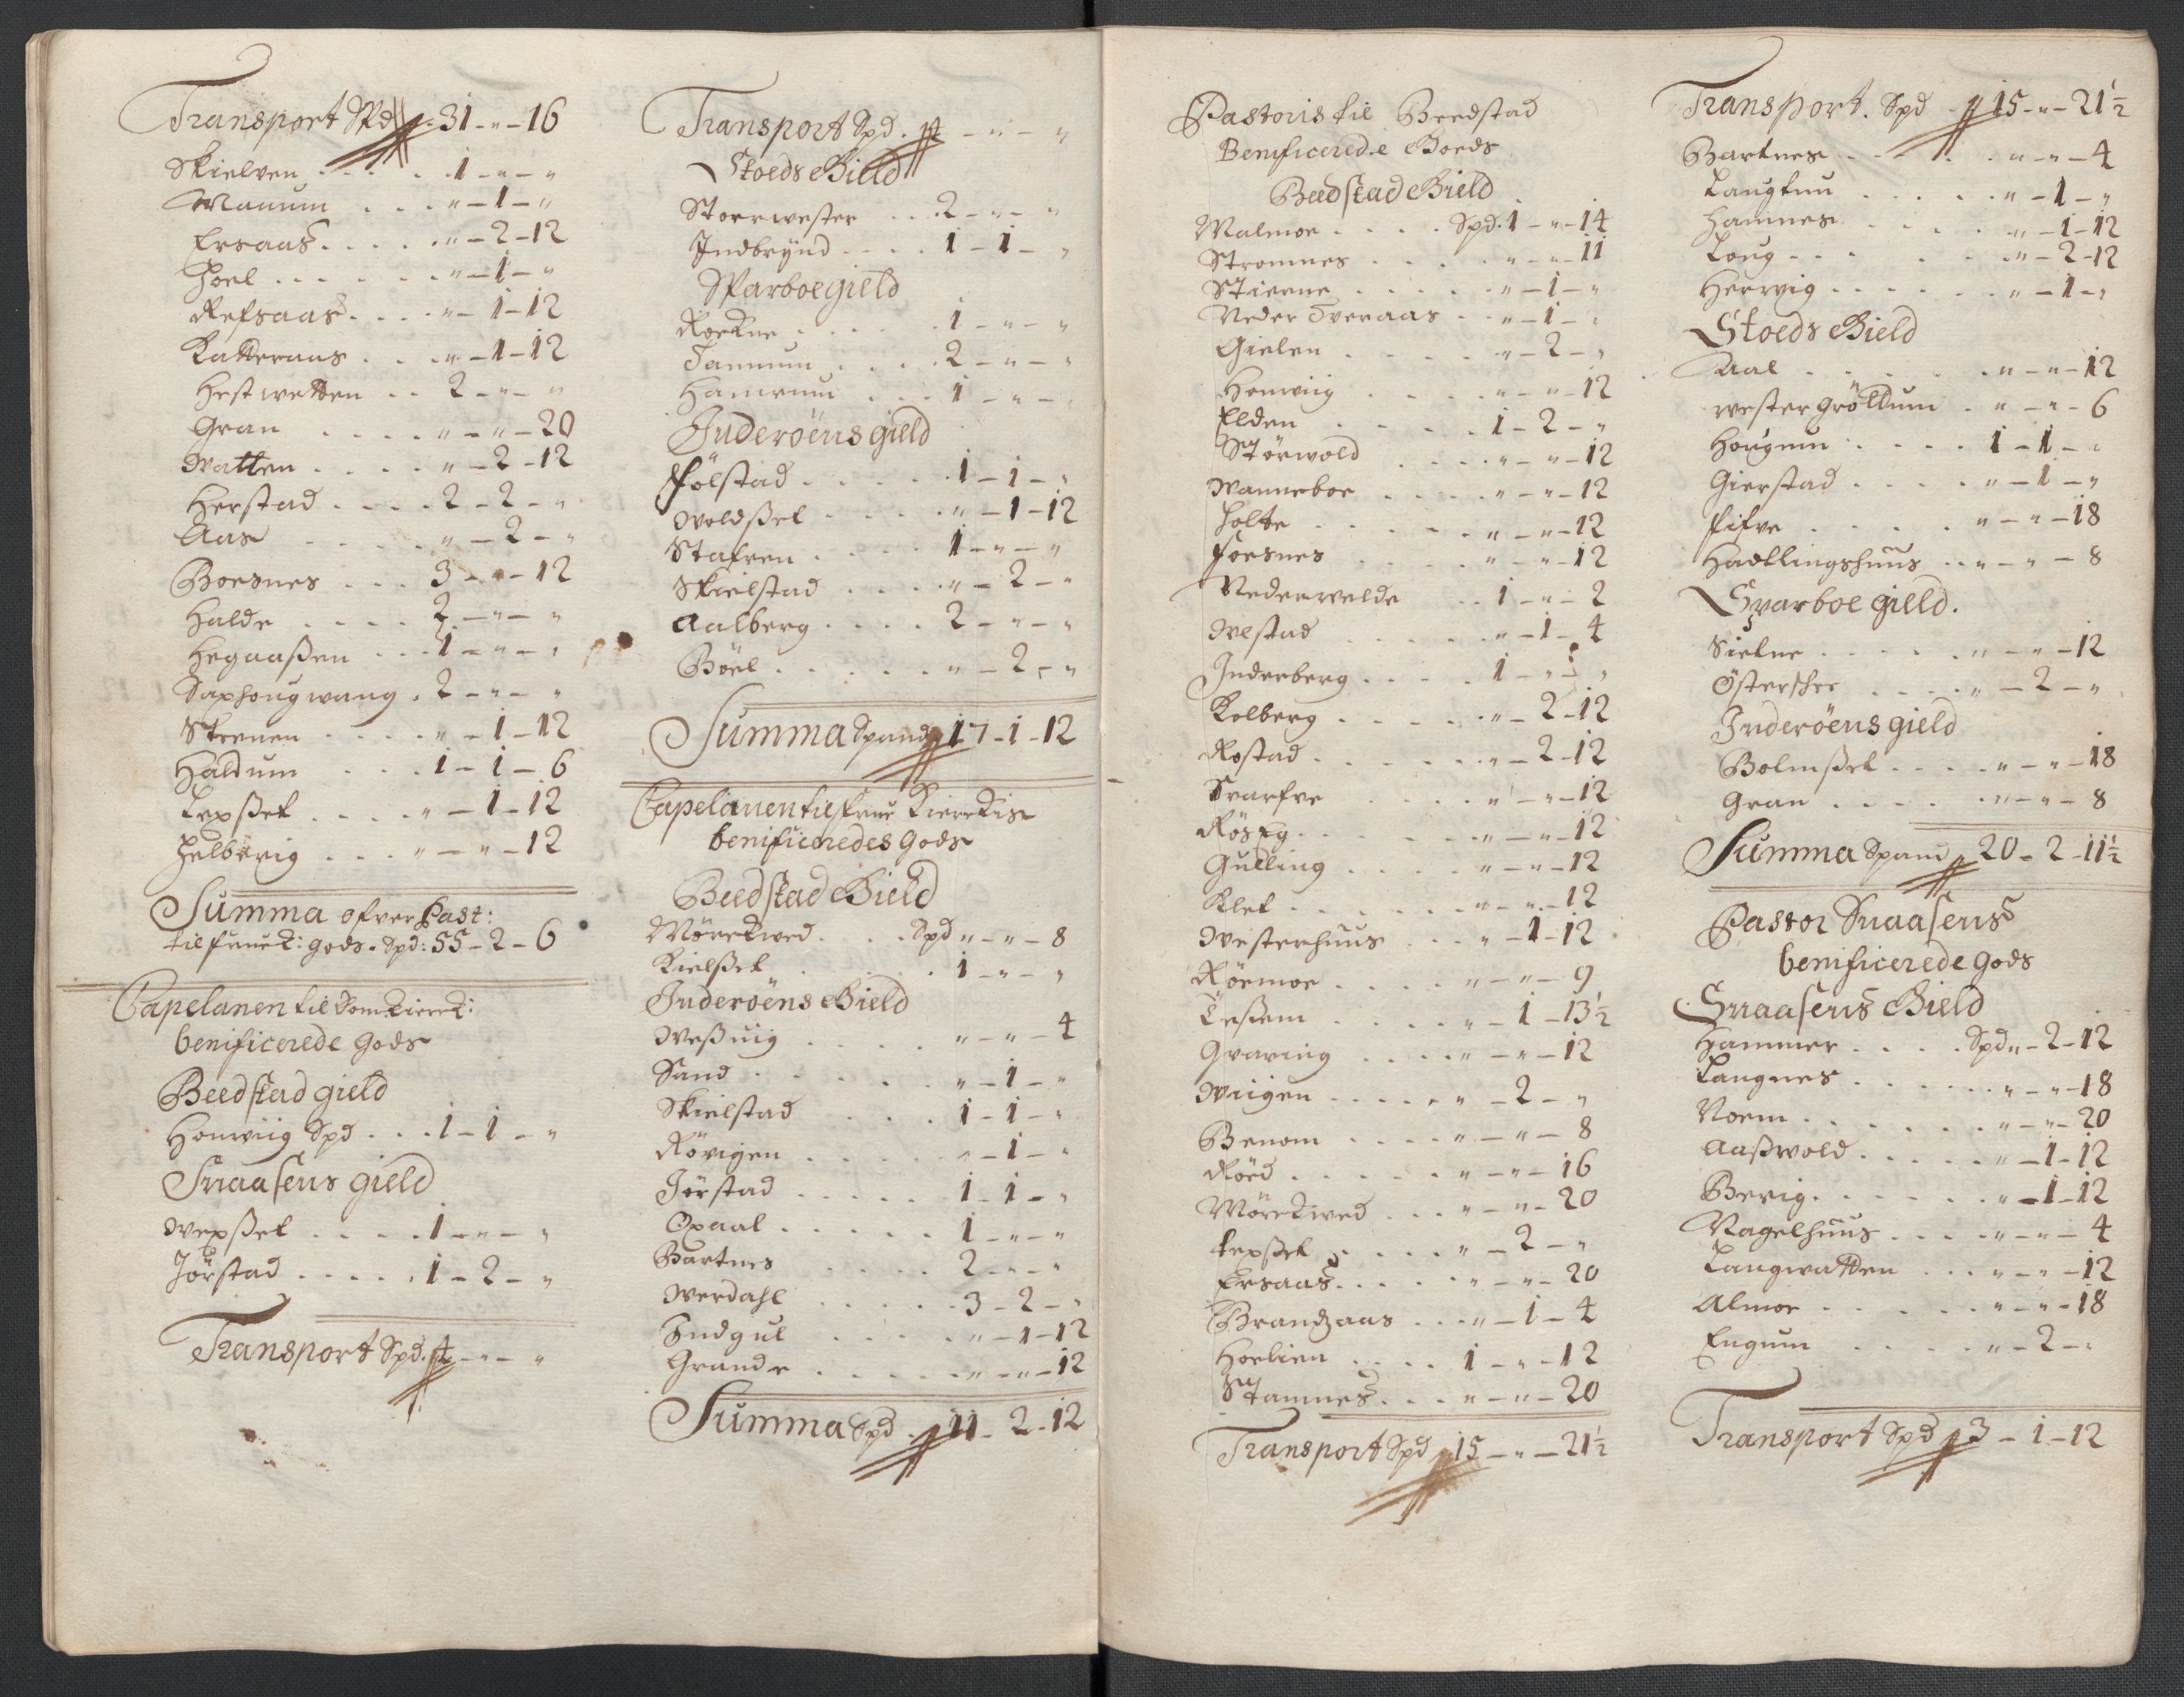 Transport Spd 31 - " - 16
Skielven . . . . 1 - " - "
Manum . . . " - 1 - "
Ersaas . . . . " - 2 - 12
Hoel . . . . . . " - 1 - "
Refsaas . . . . " - 1 - 12
Katteraas . . . " - 1 - 12
Hestwetten . . 2 - " - "
Gran . . . . " - " - 20
Watten . . . . " - 2 - 12
Herstad . . . . 2 - 2 - "
Aas . . . . " - 2 - "
Boesnes . . . 3 - " - 12
Halde . . . . 2 - " - "
Hegaaßen . . . 1 - " - "
Saxhougwang . 2 - " - "
Skrenen . . . . " - 1 - 12
Haldum . . . 1 - 1 - 6
Lexßet . . . . " - 1 - 12
Helbørig . . . " - " - 12
Summa ofver Past:
til frue k: gods . Spd: 55 - 2 - 6
Capelanen til Domkierk:
benificerede Gods
Beedstad gield
Honwiig Spd . . . 1 - 1 - "
Snaasens gield
Wexßet . . . . 1 - " - "
Jørstad . . . . . 1 - 2 - "
Transport Spd. 4 - " - "
Transport Spd. 4 - " - "
Stoeds Gield
Stoerwester . . . 2 - " - "
Indbrynd . . . . 1 - 1 - "
Sparboegield
Roekne . . . . . 1 - " - "
Tannum . . . . 2 - " - "
Hamrum . . . 1 - " - "
Inderöens gield
Fölstad . . . . . 1 - 1 - "
Woldßet . . . . " - 1 - 12
Stafren . . . . 1 - " - "
Skielstad . . . . " - 2 - "
Aalberg . . . . 2 - " - "
Böel . . . . . . " - 2 - "
Summa Spand 17 - 1 - 12
Capelanen til frue Kierckis
benificeredes Gods
Beedstad Gield
Mørckwed . . . . Spd " - " - 8
Kielßet . . . . . 1 - " - "
Inderöens Gield
Weßuig . . . . " - " - 4
Sand . . . . . . " - 1 - "
Skielstad . . . 1 - 1 - "
Rövigen . . . . . " - 1 - "
Jörstad . . . . . 1 - 1 - "
Oxaal . . . . . 1 - " - "
Bartnes . . . . 2 - " - "
Werdahl . . . . . 3 - 2 - "
Indgul . . . . " - 1 - 12
Grande . . . . . " - " - 12
Summa Spd . 11 - 2 - 12
Pastoris til Beedstad
Benificerede Goeds
Beedstad Gield
Malmoe . . . . Spd. 1 - " - 14
Stromnes . . . . . " - " - 11
Stierne . . . . . " - 1 - "
Neder Overaas . . " - 1 - "
Gielen . . . . . " - 2 - "
Honwiig . . . . " - " - 12
Elden . . . . . 1 - 2 - "
Störwold . . . . " - " - 12
Wanneboe . . . . " - " - 12
Holte . . . . . " - " - 12
Foesnes . . . . " - " - 12
Nederwelde . . 1 - " - 2
Welstad . . . . . " - 1 - 4
Inderberg . . . . 1 - " - "
Kolberg . . . . . " - 2 - 12
Rostad . . . . . . " - 2 - 12
Svarfve . . . . " - " - 12
Røseg . . . . . . " - " - 12
Gulling . . . . " - " - 12
Klet . . . . . . " - " - 12
Westerhuus . . . " - 1 - 12
Röemoe . . . . " - " - 9
Teßem . . . . . " - 1 - 13½
Qvaving . . . . " - " - 12
Wiigen . . . . . " - 2 - "
Benom . . . . " - " - 8
Röed . . . . . . " - " - 16
Mörckwed . . . " - " - 20
Lexßet . . . . " - 2 - "
Ersaas . . . . . " - " - 20
Brandzaas . . . " - 1 - 4
Hoelien . . . . 1 - " - 12
Stamnes . . . " - " - 20
Transport Spd 15 - " - 21½
Transport . Spd 15 - " - 21½
Bartnes . . . . . " - " - 4
Langkun . . . . . " - 1 - "
Hamnes . . . . . " - 1 - 12
Loug . . . . . . " - 2 - 12
Herwig . . . . . . " - 1 - "
Stoeds Gield
Aal . . . . . . " - " - 12
wester Gröldum . " - " - 6
Hougum . . . . 1 - 1 - "
Gierstad . . . . " - 1 - "
Fifve . . . . . " - " - 18
Hadtlingshuus . . " - " - 8
Sparboe gield .
Sielne . . . . . . " - " - 12
Østerschee . . . . " - 2 - "
Inderöens gield
Bolmßet . . . . " - " - 18
Gran . . . . . . " - " - 8
Summa Spand 20 - 2 - 11½
Pastor Snaasens
benificerede Gods
Snaasens Gield
Hammer . . . . Spd " - 2 - 12
Langnes . . . . . . " - " - 18
Noem . . . . . . . " - " - 20
Aaßwold . . . . . " - 1 - 12
Berig . . . . . . " - 1 - 12
Nagelhuus . . . . " - " - 4
Langwatten . . . " - " - 12
Almoe . . . . . . " - " - 18
Engum . . . . " - 2 - "
Transport Spd 3 - 1 - 12